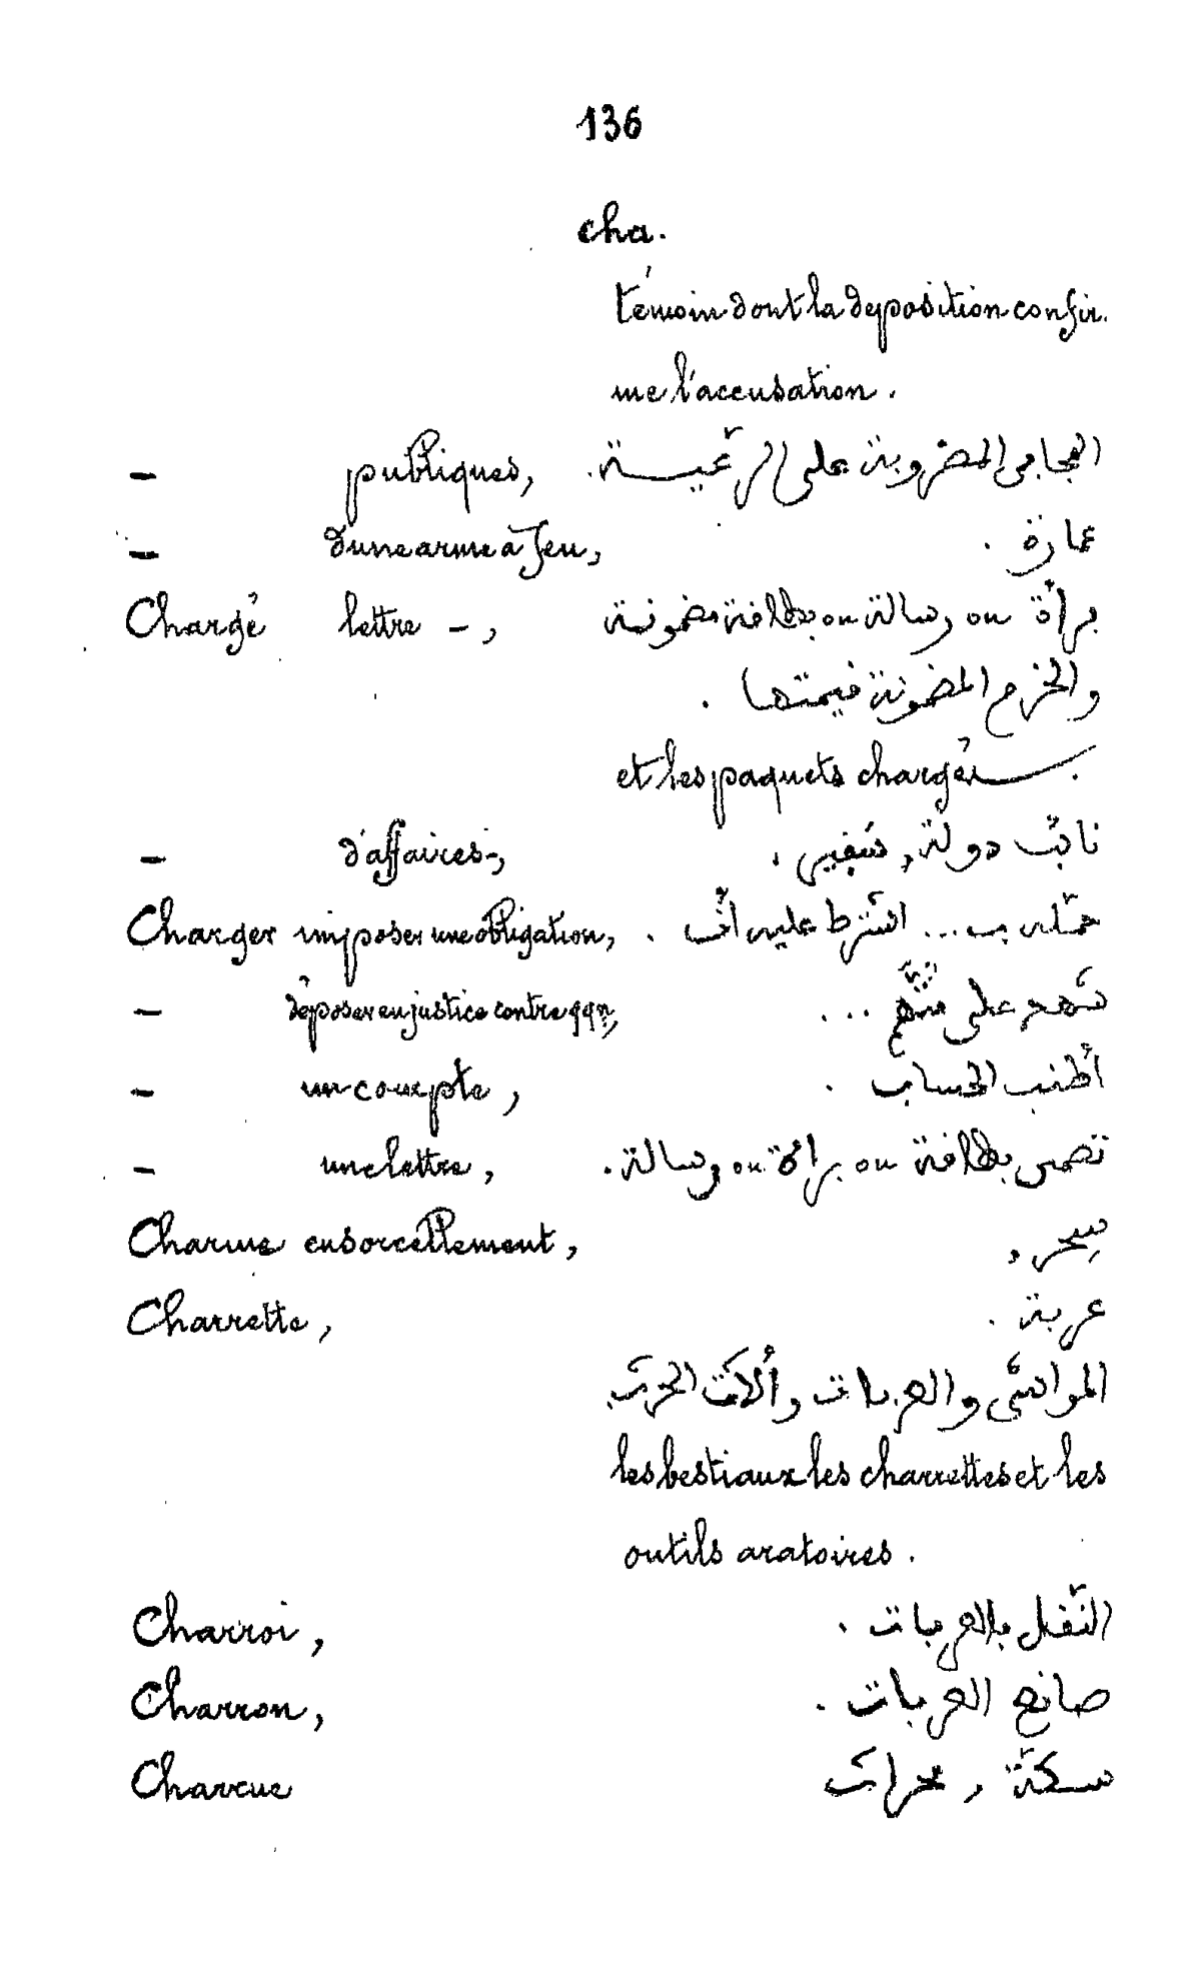 136
cha.
témoin dont la deposition confir-
me l'accusation.
— publiques, المضروبة على الرّعيــة.
— d'une arme à feu, عمارة.
Chargé lettre —, برأة ou رسالة ou بطافة مضمونة
والخزم المضمونة فيمتها.
et les paquets chargés.
— d'affaires —, نائب دولة,
Charger imposer une obligation, حمّله ب... اشترط عليه أنّ.
— déposer en justice contre qqn, شهد على ...
— un compte, أطنب الحساب.
— une lettre, بطافة ou براة ou رسالة.
Charme ensorcellement, سِحر.
Charrette, عربة.
المواشي والعربات وألات الحرث
les bestiaux les charrettes et les
outils aratoires.
Charroi, النّفل بالعربات.
Charron, صانع العربات.
Charrue سكّة, محراث